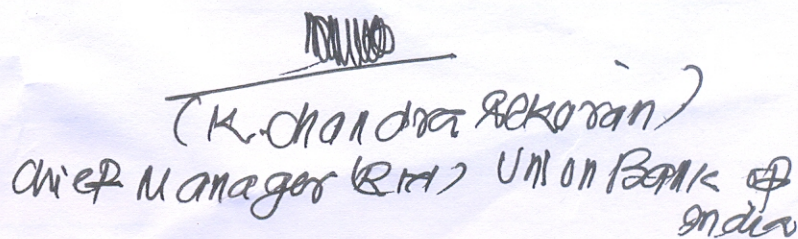 (K. Chandra Sekaran)
Chief Manager (Rtd) Union Bank of
India